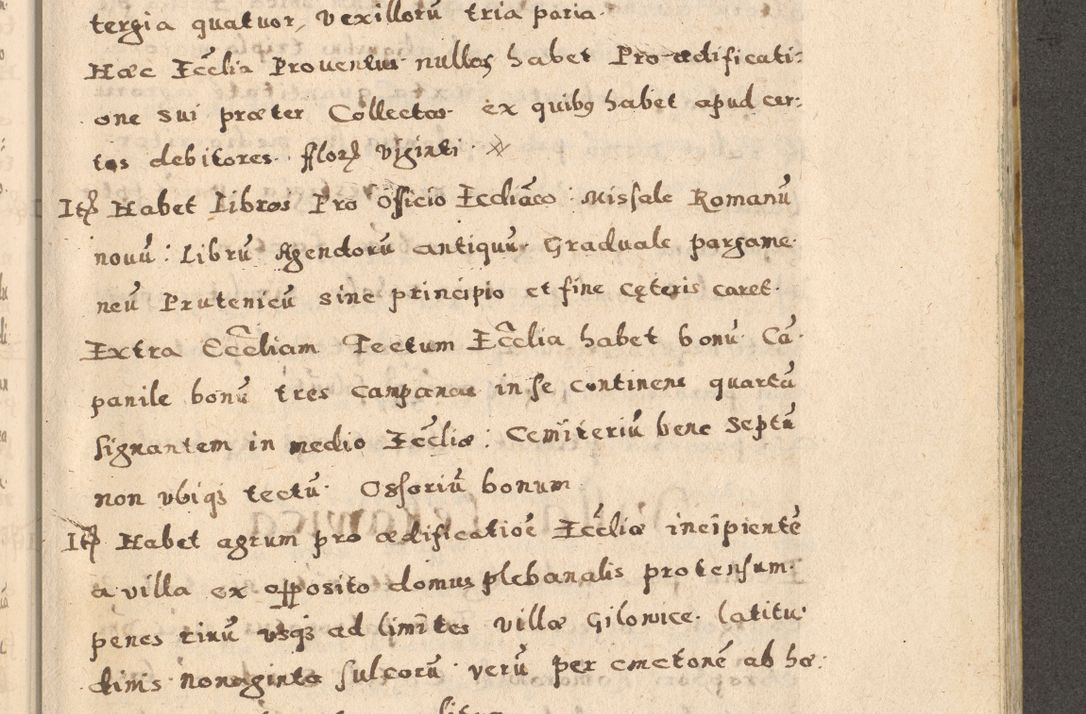 tergia quatuor, vexillorũ tria paria.
Hæc Eccłia Prouentus nullos habet Pro ædificati:
one sui præter Collectas ex quibꝰ habet apud cer:
tos debitores florꝭ viginti
Itꝭ Habet Libros Pro Officio Ecclĩaco Missale Romanũ
nouũ: Librũ Agendorũ antiquũ Graduale pargame
neũ Prutenicũ sine principio et fine cęteris caret.
Extra Ecclliam Tectum Ecclia habet bonũ. Cã
panile bonũ tres campanas in se continens quartã
signantem in medio Eccliæ: Cemiteriũ bene septũ
non vbiqꝫ tectũ. Ossoriũ bonum
Itꝭ Habet agrum pro ædificatione Eccliæ incipientẽ
a villa ex opposito domus plebanalis protensum.
penes riuũ vsqꝫ ad limites villæ Gilowice. latitu
dinis nonaginta sulcorũ. verũ per